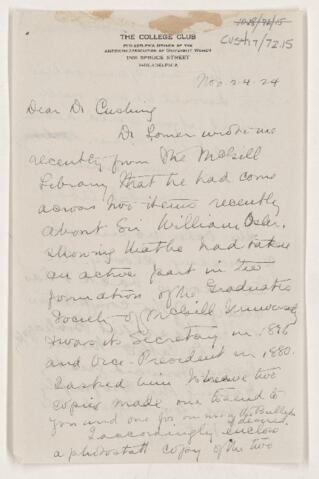 THE COLLEGE CLUB
PHILADELPHIA BRANCH OF THE
AMERICAN ASSOCIATION OF UNIVERSITY WOMEN
1300 SPRUCE STREET
PHILADELPHIA
CUS417/72.15
Nov. 24. 24
Dear Dr Cushing
Dr Lomer wrote me
recently from the McGill
Library that he had come
across two items recently
about Sir William Osler,
showing that he had taken
an active part in the
formation of the Graduates
Society of McGill University
& was its Secretary in 1876
and Vice-President in 1880.
I asked him to have two
copies made one to send to
you and one for
I accordingly enclose
a photostat copy of the two